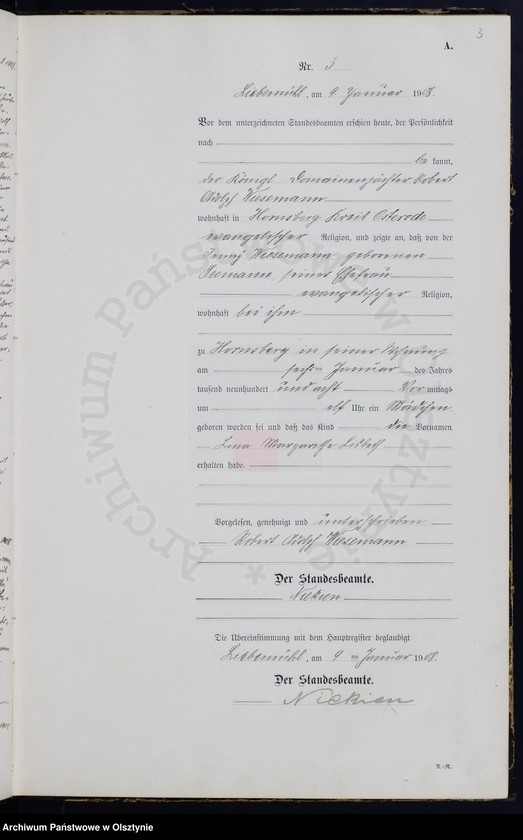 3
A.
Nr. 3
Liebemühl, am 9 Januar 1908.
Vor dem unterzeichneten Standesbeamten erschien heute, der Persönlichkeit
nach
be kannt,
der Königl. Domainenpächter Robert
Adolf Wiesemann
wohnhaft in Hornsberg Kreis Osterode
evangelischer Religion, und zeigte an, daß von der
Wiesemann geborenen
seiner Ehefrau
evangelischer Religion,
wohnhaft bei ihm
zu Hornsberg in seiner Wohnung
am sechsten Januar des Jahres
tausend neunhundert und acht Vor mittags
um elf Uhr ein Mädchen
geboren worden sei und daß das Kind die Vornamen
Lena Margarethe Lisbeth
erhalten habe.
Vorgelesen, genehmigt und unterschrieben
Robert Adolf Wiesemann
Der Standesbeamte.
Nickien
Die Übereinstimmung mit dem Hauptregister beglaubigt
Liebemühl, am 9 ten Januar 1908.
Der Standesbeamte.
Nickien
Archiwum Państwowe w Olsztynie
Archiwum Państwowe w Olsztynie